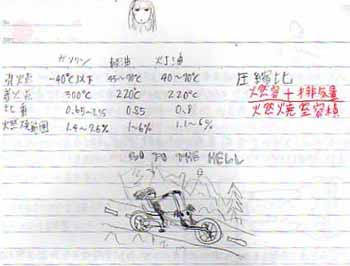 ガソリン 軽油 灯油
引火点 -40℃以下 45~70℃ 40~70℃
着火点 300℃ 220℃ 220℃
比重 0.65~0.75 0.85 0.8
燃焼範囲 1.4~7.6% 1~6% 1.1~6%
圧縮比
燃室+排気量
燃焼室容積
GO TO THE HELL